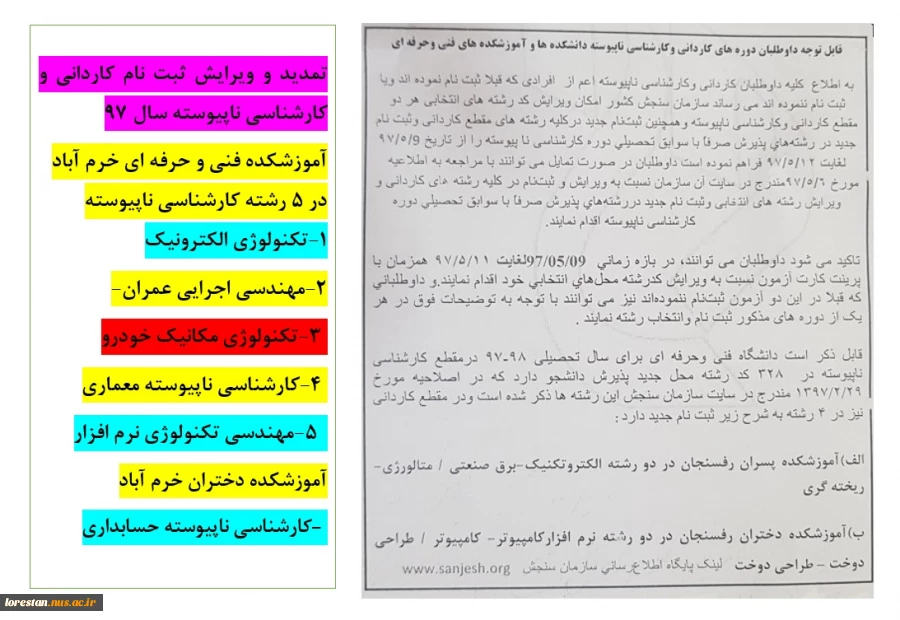 تمدید و ویرایش ثبت نام کاردانی و
کارشناسی ناپیوسته سال ۹۷
آموزشکده فنی و حرفه ای خرم آباد
در ۵ رشته کارشناسی ناپیوسته
۱-تکنولوژی الکترونیک
۲-مهندسی اجرایی عمران-
۳-تکنولوژی مکانیک خودرو
۴-کارشناسی ناپیوسته معماری
۵-مهندسی تکنولوژی نرم افزار
آموزشکده دختران خرم آباد
-کارشناسی ناپیوسته حسابداری
قابل توجه داوطلبان دوره های کاردانی وکارشناسی ناپیوسته دانشکده ها و آموزشکده های فنی وحرفه ای
به اطلاع کلیه داوطلبان کاردانی وکارشناسی ناپیوسته اعم از افرادی که قبلا ثبت نام نموده اند ویا
ثبت نام ننموده اند می رساند سازمان سنجش کشور امکان ویرایش کد رشته های انتخابی هر دو
مقطع کاردانی وکارشناسی ناپیوسته وهمچنین ثبت‌نام جدید درکلیه رشته های مقطع کاردانی وثبت نام
جدید در رشته‌هاي پذیرش صرفاً با سوابق تحصیلي دوره کارشناسی نا پیوسته را از تاریخ ۹۷/۵/9
لغایت ۹۷/۵/۱۲ فراهم نموده است داوطلبان در صورت تمایل می توانند با مراجعه به اطلاعیه
مورخ ۹۷/۵/۶مندرج در سایت آن سازمان نسبت به ویرایش و ثبت‌نام در کلیه رشته های کاردانی و
ویرایش رشته های انتخابی وثبت نام جدید دررشته‌هاي پذیرش صرفاً با سوابق تحصیلي دوره
کارشناسی ناپیوسته اقدام نمایند.
تاکید می شود داوطلبان می توانند، در بازه زماني 97/05/09لغایت ۹۷/۵/۱۱ همزمان با
پرینت کارت آزمون نسبت به ویرایش کدرشته محل‌هاي انتخابي خود اقدام نمایند.و داوطلباني
که قبلا در این دو آزمون ثبت‌نام ننموده‌اند نیز می توانند با توجه به توضیحات فوق در هر
یک از دوره های مذکور ثبت نام وانتخاب رشته نمایند .
قابل ذکر است دانشگاه فنی وحرفه ای برای سال تحصیلی ۹۸-۹۷ درمقطع کارشناسی
ناپیوسته در ۳۲۸ کد رشته محل جدید پذیرش دانشجو دارد که در اصلاحیه مورخ
۱۳۹۷/۲/۲۹ مندرج در سایت سازمان سنجش این رشته ها ذکر شده است ودر مقطع کاردانی
نیز در ۴ رشته به شرح زیر ثبت نام جدید دارد :
الف)آموزشکده پسران رفسنجان در دو رشته الکتروتکنیک-برق صنعتی / متالورژی-
ریخته گری
ب)آموزشکده دختران رفسنجان در دو رشته نرم افزارکامپیوتر- کامپیوتر / طراحی
دوخت - طراحی دوخت لینک پایگاه اطلاع‌رساني سازمان سنجش www.sanjesh.org
lorestan.nus.ac.ir